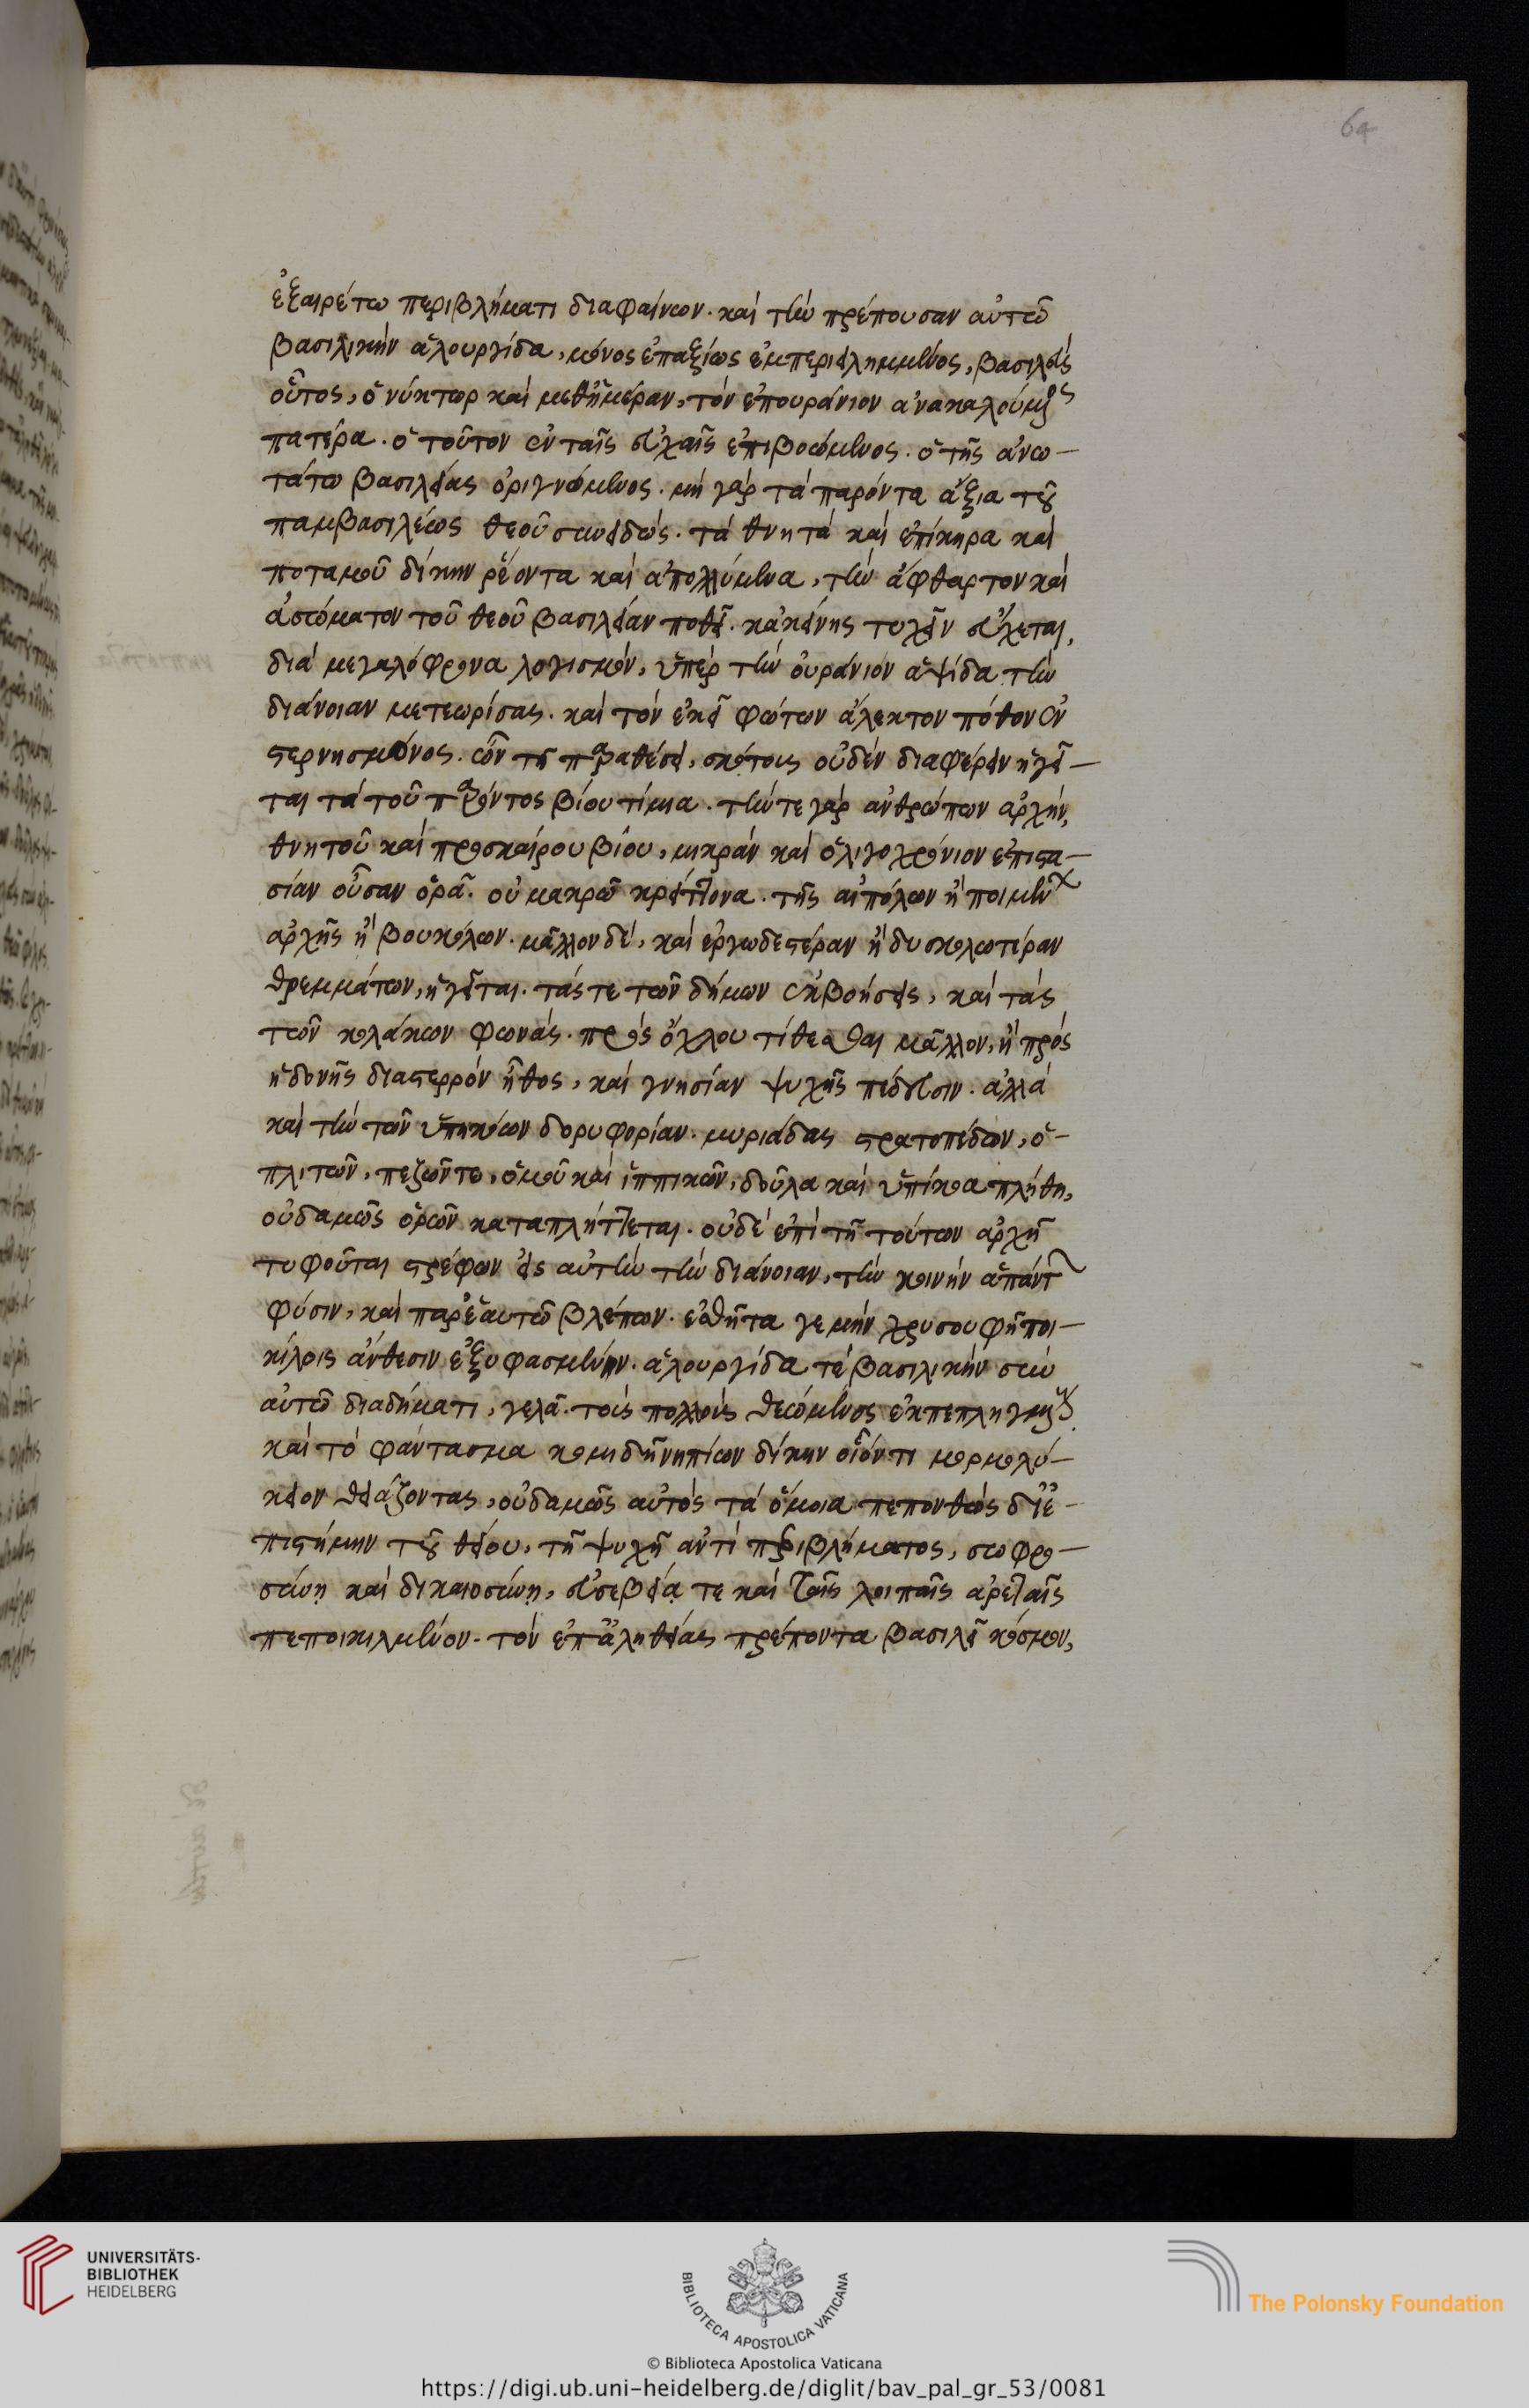 64
ἐξαιρέτω περιβλήματι διαφαίνων. καὶ τὴν πρέπουσαν αὐτῶ
βασιλικὴν ἁλουργίδα, μόνος ἐπαξίως ἐμπεριειλημμένος, βασιλεὺς
οὗτος, ὁ νύκτωρ καὶ μεθημέραν, τὸν ἐπουράνιον ἀνακαλούμενος
πατέρα. ὁ τοῦτον ἐν ταῖς εὐχαῖς ἐπιβοώμενος. ὁ τῆς ἀνω-
τάτω βασιλείας ὀριγνώμενος. μὴ γὰρ τὰ παρόντα ἄξια τοῦ
παμβασιλέως θεοῦ συνειδώς. τὰ θνητὰ καὶ ἐπίκηρα καὶ
ποταμοῦ δίκην ῥέοντα καὶ ἀπολλύμενα, τὴν ἄφθαρτον καὶ
ἀσώματον τοῦ θεοῦ βασιλείαν ποθεῖ. κἀκείνης τυχεῖν εὔχεται,
διὰ μεγαλόφρονα λογισμὸν, ὑπὲρ τὴν οὐράνιον ἁψίδα τὴν
διάνοιαν μετεωρίσας. καὶ τὸν ἐκεῖ φώτων ἄλεκτον πόθον ἐν
στερνησμένος. ὧν τῇ παραθέσει, σκότους οὐδὲν διαφέρειν ἡγεῖ-
ται τὰ τοῦ παρόντος βίου τίμια. τήν τε γὰρ ἀνθρώπων ἀρχὴν,
θνητοῦ καὶ προσκαίρου βίου, μικρὰν καὶ ὀλιγοχρόνιον ἐπιστα-
σίαν οὖσαν ὁρᾶ. οὐ μακρῶ κρείττονα. τῆς αἰπόλων ἢ ποιμένων
ἀρχῆς ἢ βουκόλων. μᾶλλον δὲ, καὶ ἐργωδεστέραν ἢ δυσκολωτέραν
θρεμμάτων, ἡγεῖται. τάς τε τῶν δήμων ἐκβοήσεις, καὶ τὰς
τῶν κολάκων φωνάς. πρὸς ὄχλου τίθεσθαι μᾶλλον, ἢ πρὸς
ἡδονῆς διαστερρὸν ἦθος, καὶ γνησίαν ψυχῆς πέδευσιν. ἀλλὰ
καὶ τὴν τῶν ὑπηκόων δορυφορίαν. μυριάδας στρατοπέδων, ὁ-
πλιτῶν, πεζῶντο, ὁμοῦ καὶ ἱππικῶν, δοῦλα καὶ ὑπίκοα πλήθη,
οὐδαμῶς ὁρῶν καταπλήττεται. οὐδὲ ἐπὶ τῆ τούτων ἀρχῆ
τυφοῦται στρέφων εἰς αὐτὴν τὴν διάνοιαν, τὴν κοινὴν ἁπάντων
φύσιν, καὶ παρ' ἑαυτῶ βλέπων. ἐσθῆτα γε μὴν χρυσουφῆ ποι-
κίλοις ἄνθεσιν ἐξυφασμένην. ἁλουργίδα τὲ βασιλικὴν σὺν
αὐτῶ διαδήματι, γελᾶ. τοὺς πολλοὺς θεώμενος ἐκπεπληγμένους
καὶ τὸ φάντασμα κομιδῆ νηπίων δίκην οἷόν τι μορμολύ-
κειον θειάζοντας, οὐδαμῶς αὐτὸς τὰ ὅμοια πεπονθὼς δι' ἐ-
πιστήμην τοῦ θείου, τῆ ψυχῆ ἀντὶ περιβλήματος, σωφρο-
σύνη καὶ δικαιοσύνη, εὐσεβεία τε καὶ ταῖς λοιπαῖς ἀρεταῖς
πεποικιλμένον. τὸν ἐπ' ἀληθείας πρέποντα βασιλεῖ κόσμον,
UNIVERSITÄTS-
BIBLIOTHEK
HEIDELBERG
BIBLIOTECA APOSTOLICA VATICANA
The Polonsky Foundation
© Biblioteca Apostolica Vaticana
https://digi.ub.uni-heidelberg.de/diglit/bav_pal_gr_53/0081